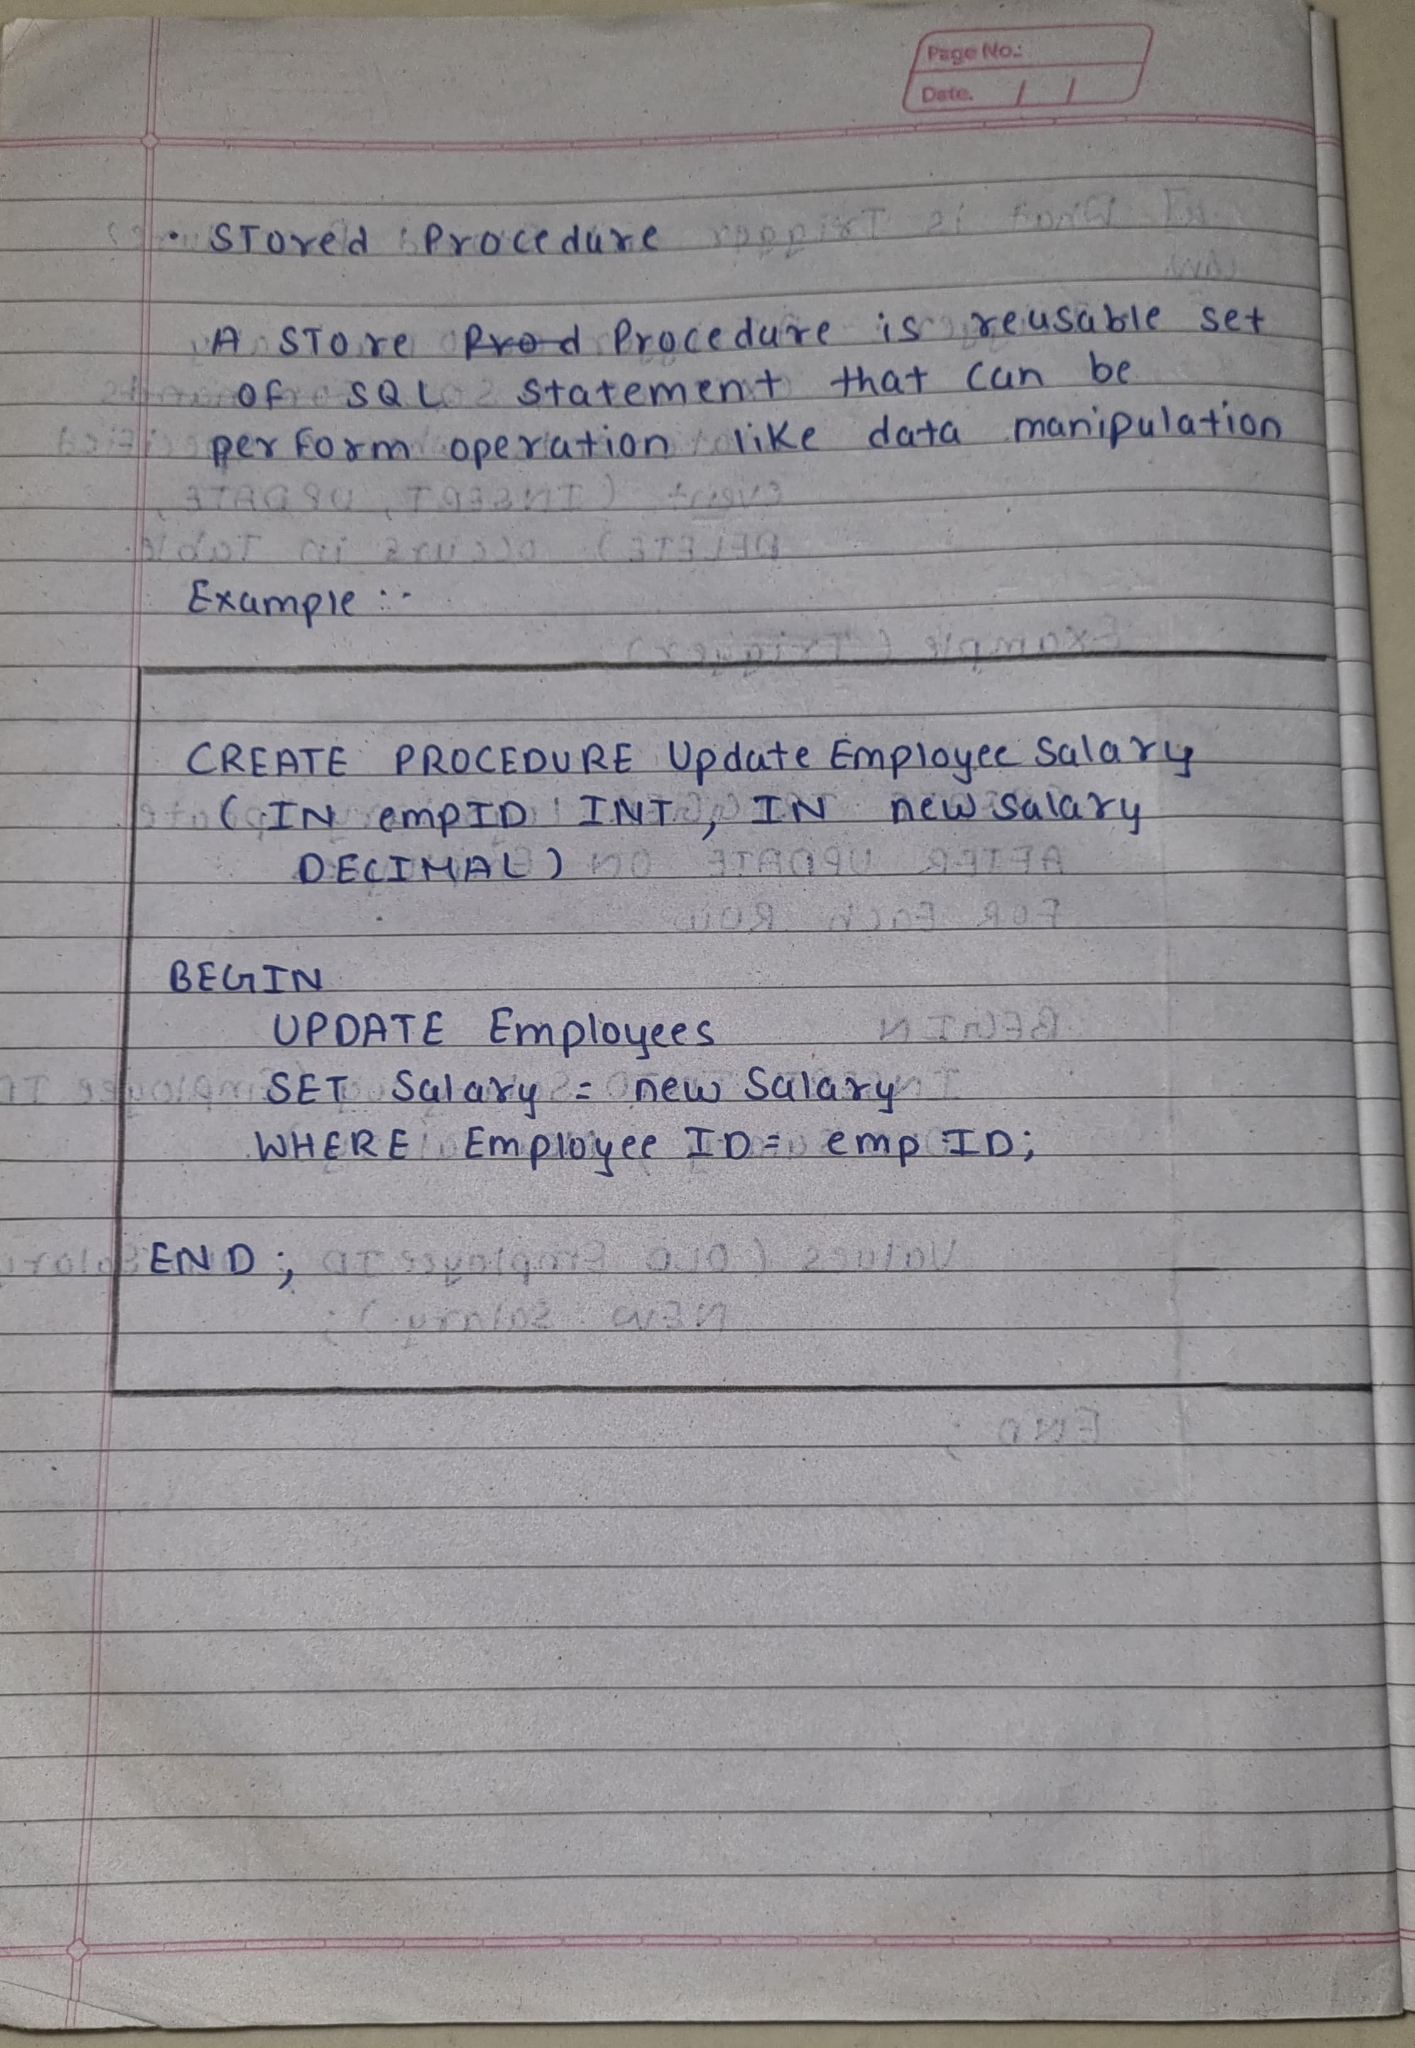 Page No.:
Date. / /
• STored Procedure
A STore Prod Procedure is reusable set
of SQL Statement that can be
perform operation like data manipulation
Example :-
CREATE PROCEDURE Update Employee Salary
(IN empID INT, IN new salary
DECIMAL)
BEGIN
UPDATE Employees
SET Salary = new Salary
WHERE Employee ID = emp ID;
END;